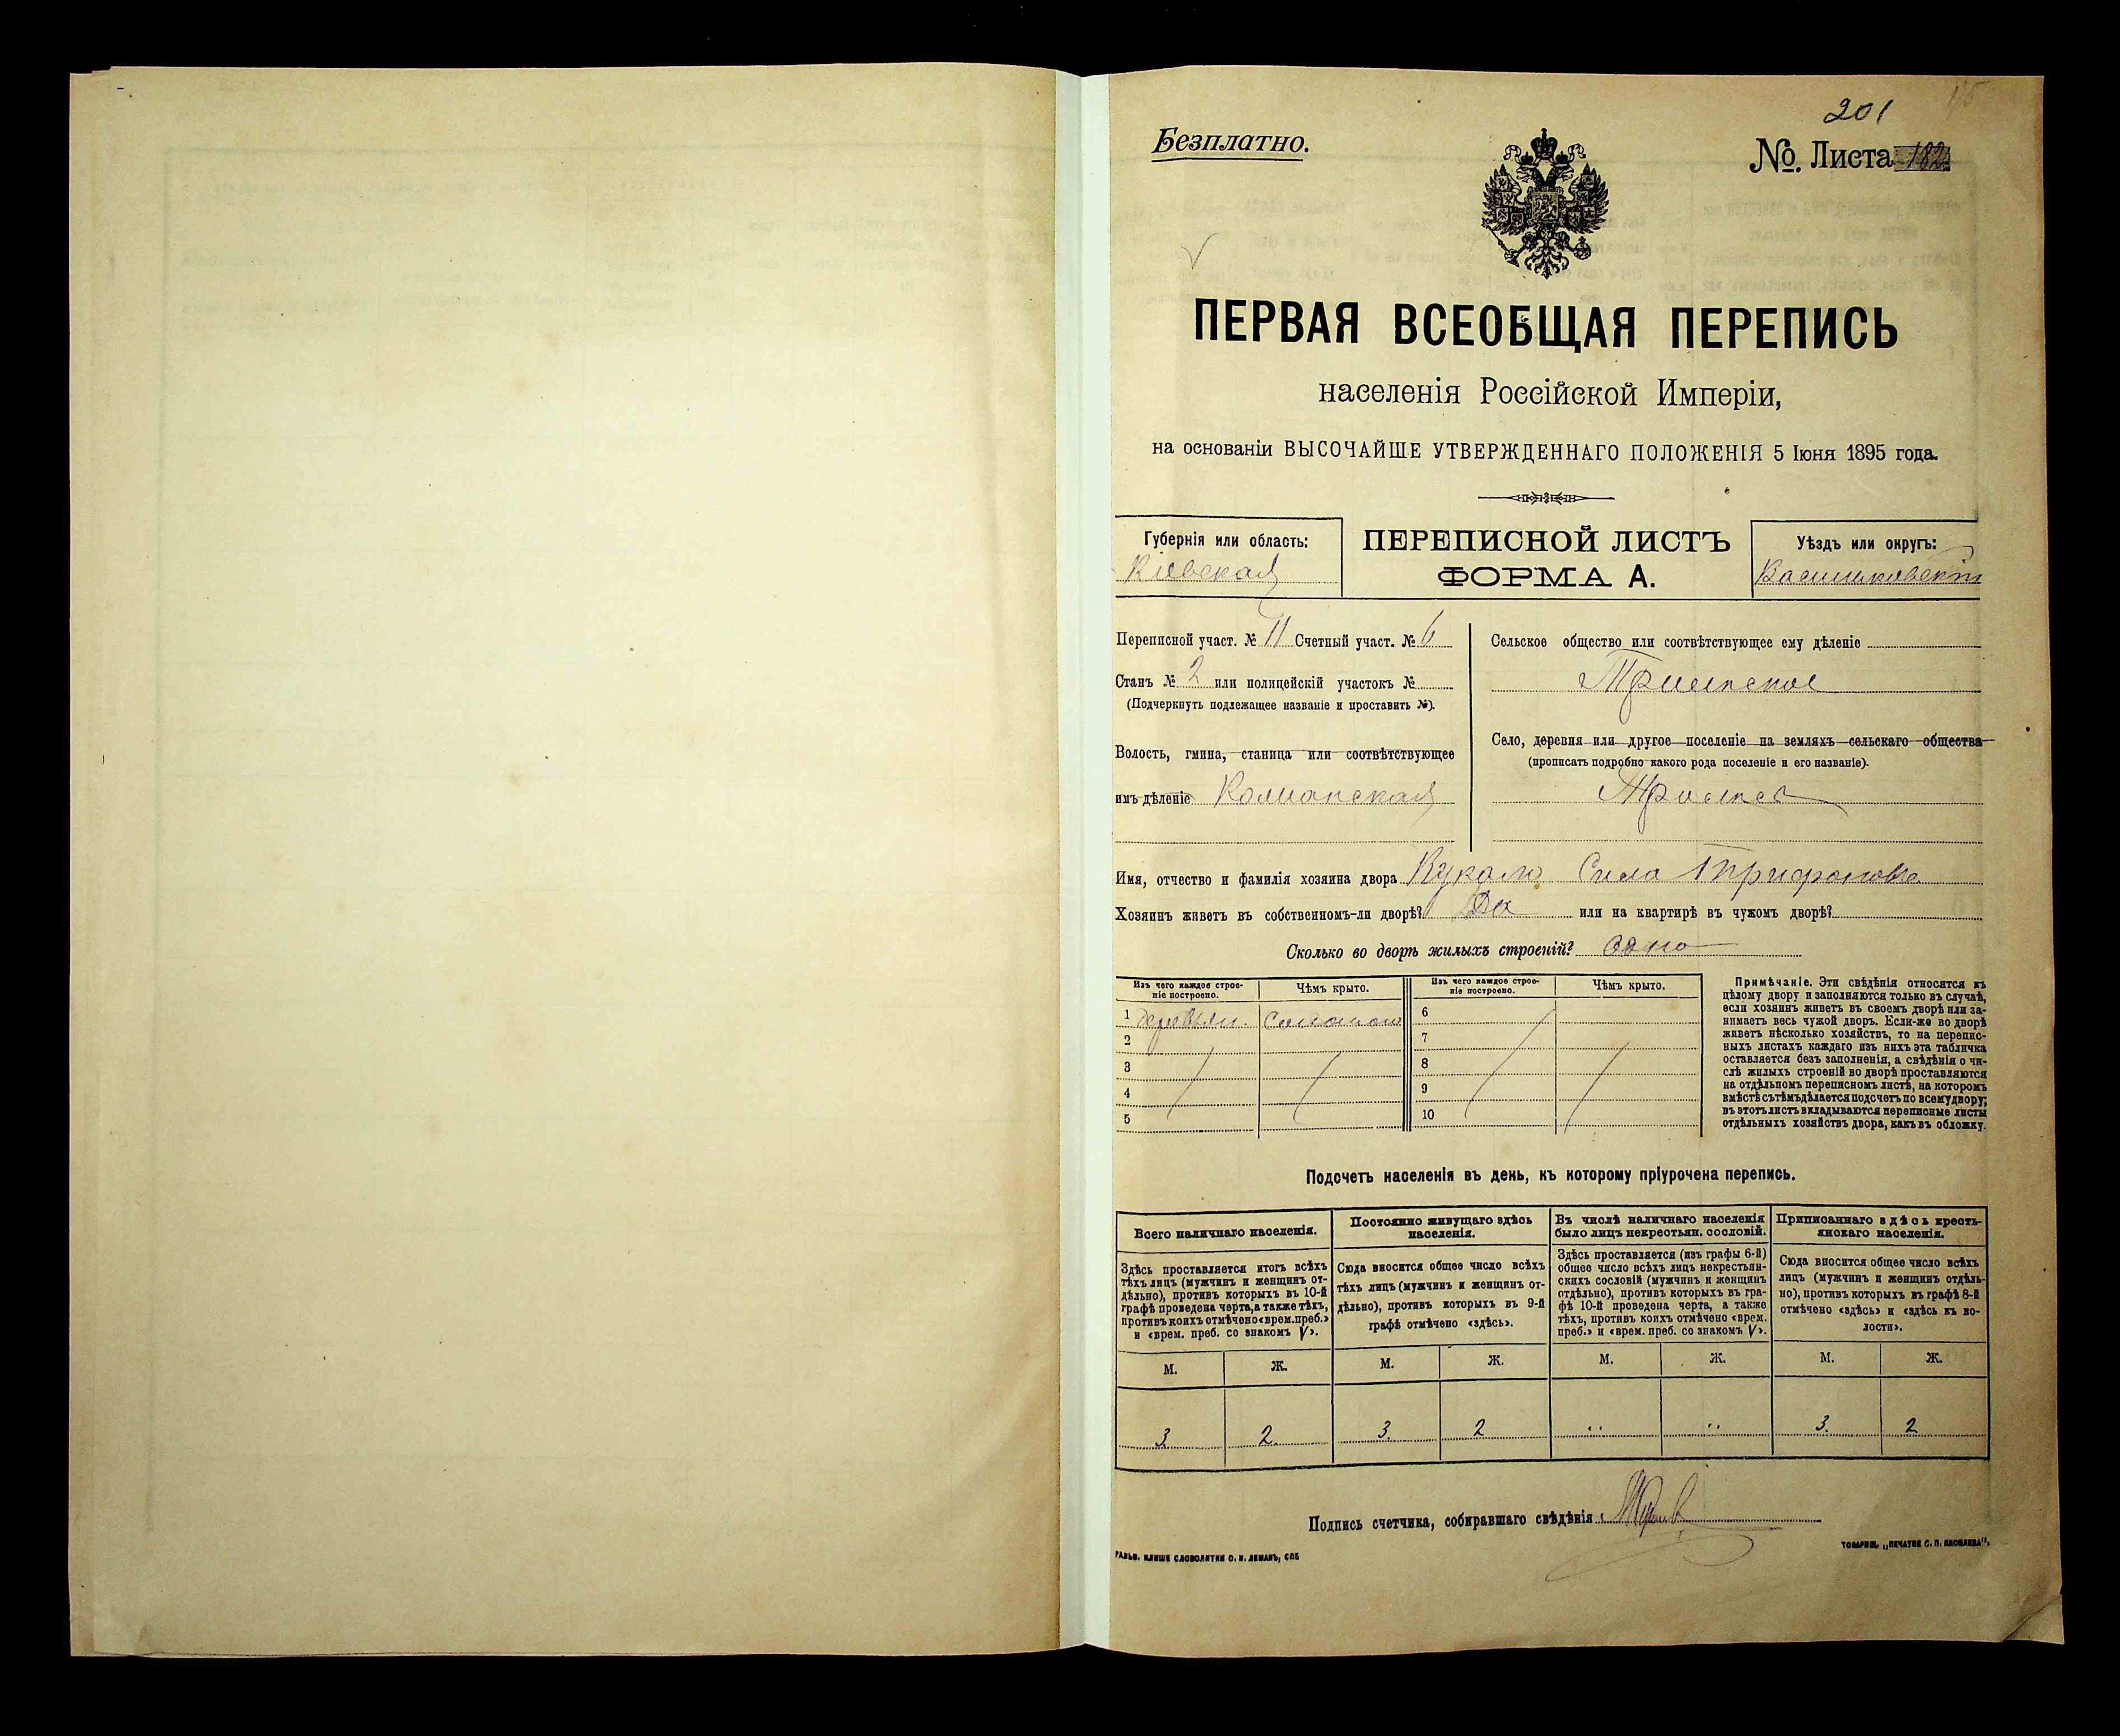 201
Безплатно.
№. Листа 182
ПЕРВАЯ ВСЕОБЩАЯ ПЕРЕПИСЬ
населенія Россійской Имперіи,
на основаніи ВЫСОЧАЙШЕ УТВЕРЖДЕННАГО ПОЛОЖЕНІЯ 5 Іюня 1895 года.
Губернія или область:
Кіевская
ПЕРЕПИСНОЙ ЛИСТЪ
ФОРМА А.
Уѣздъ или округъ:
Васильковскій
Переписной участ. № 11 Счетный участ. № 6
Станъ № 2 или полицейскій участокъ №
(Подчеркнуть подлежащее названіе и проставить №).
Волость, гмина, станица или соотвѣтствующее
имъ дѣленіе
Сельское общество или соотвѣтствующее ему дѣленіе
Трилѣсское
Село, деревня или другое поселеніе на земляхъ сельскаго общества
(прописать подробно какого рода поселеніе и его названіе).
Трилѣсы
Имя, отчество и фамилія хозяина двора Сила Трифоновъ
Хозяинъ живетъ въ собственномъ-ли дворѣ? Да или на квартирѣ въ чужомъ дворѣ?
Сколько во дворѣ жилыхъ строеній? Одно
Изъ чего каждое строе-
ніе построено.
Чѣмъ крыто.
Изъ чего каждое строе-
ніе построено.
Чѣмъ крыто.
1 деревян. соломою 6
2 7
3 8
4 9
5 10
Примѣчаніе. Эти свѣдѣнія относятся къ
цѣлому двору и заполняются только въ случаѣ,
если хозяинъ живетъ въ своемъ дворѣ или за-
нимаетъ весь чужой дворъ. Если-же во дворѣ
живетъ нѣсколько хозяйствъ, то на перепис-
ныхъ листахъ каждаго изъ нихъ эта табличка
оставляется безъ заполненія, а свѣдѣнія о чи-
слѣ жилыхъ строеній во дворѣ проставляются
на отдѣльномъ переписномъ листѣ, на которомъ
вмѣстѣ съ тѣмъ дѣлается подсчетъ по всему двору;
въ этотъ листъ вкладываются переписные листы
отдѣльныхъ хозяйствъ двора, какъ въ обложку.
Подсчетъ населенія въ день, къ которому пріурочена перепись.
Всего наличнаго населенія.
Здѣсь проставляется итогъ всѣхъ
тѣхъ лицъ (мужчинъ и женщинъ от-
дѣльно), противъ которыхъ въ 10-й
графѣ проведена черта, а также тѣхъ,
противъ коихъ отмѣчено «врем. преб.»
и «врем. преб. со знакомъ V».
М. Ж.
3 2
Постоянно живущаго здѣсь
населенія.
Сюда вносится общее число всѣхъ
тѣхъ лицъ (мужчинъ и женщинъ от-
дѣльно), противъ которыхъ въ 9-й
графѣ отмѣчено «здѣсь».
М. Ж.
3. 2
Въ числѣ наличнаго населенія
было лицъ некрестьян. сословій.
Здѣсь проставляется (изъ графы 6-й)
общее число всѣхъ лицъ некрестьян-
скихъ сословій (мужчинъ и женщинъ
отдѣльно), противъ которыхъ въ гра-
фѣ 10-й проведена черта, а также
тѣхъ, противъ коихъ отмѣчено «врем.
преб.» и «врем. преб. со знакомъ V».
М. Ж.
Приписаннаго здѣсь кресть-
янскаго населенія.
Сюда вносится общее число всѣхъ
лицъ (мужчинъ и женщинъ отдѣль-
но), противъ которыхъ въ графѣ 8-й
отмѣчено «здѣсь» и «здѣсь къ во-
лости».
М. Ж.
3. 2
Подпись счетчика, собиравшаго свѣдѣнія
ГАЛЬВ. КЛИШЕ СЛОВОЛИТНИ О. И. ЛЕМАНЪ, СПБ
ТОВАРИЩ. „ПЕЧАТНЯ С. П. ЯКОВЛЕВА“,